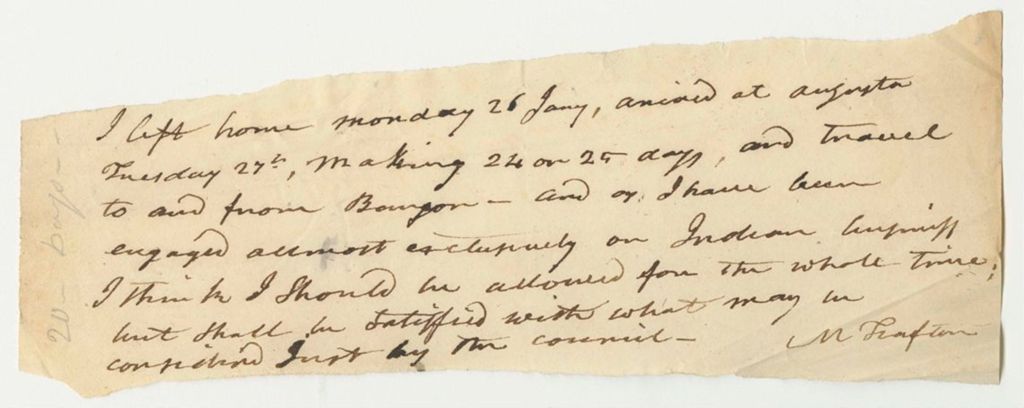 I left home monday 26 Jany, arived at augusta
Tuesday 27th, making 24 or 25 days, and travel
to and from Bangor – and as I have been
engaged allmost exclusively on Indian business
I think I Should be allowed for the whole time;
but shall be satisfied with what may be
considerd Just by the council –
M Trafton
20 days